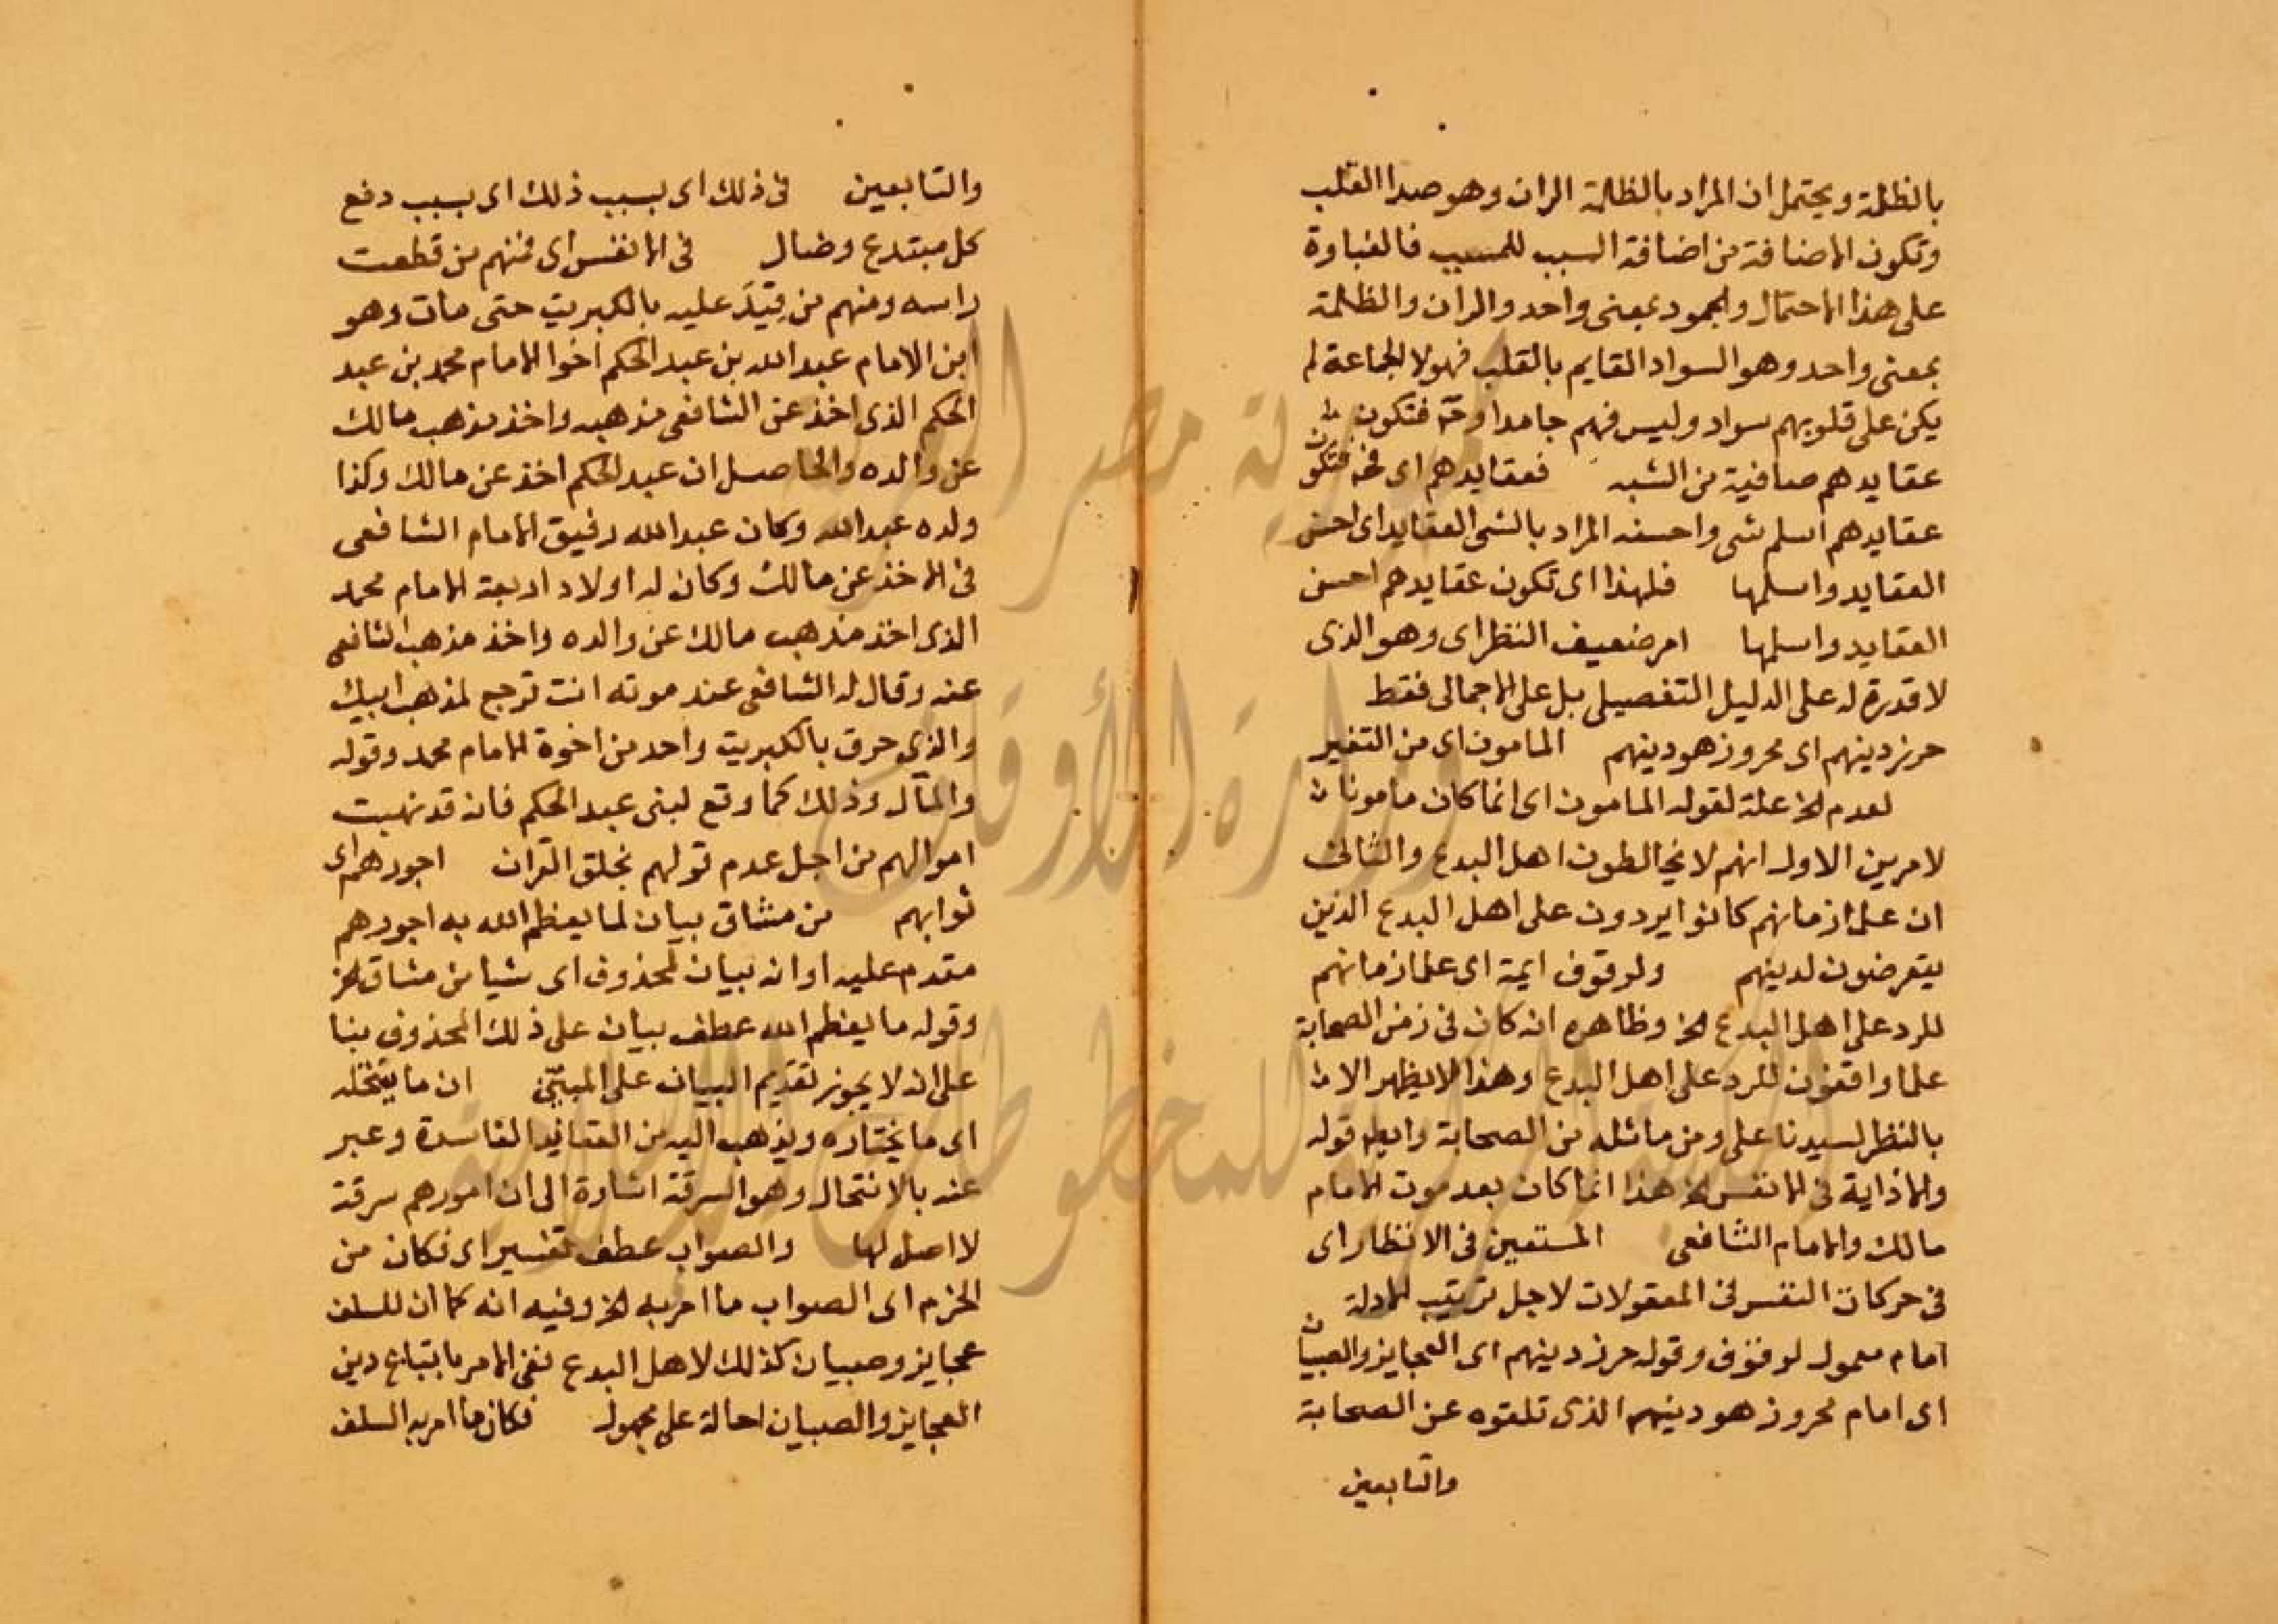 بالظلمة ويحتمل ان المراد بالظلمة الران وهو صدا القلب
وتكون الاضافة من اضافة السبب للمسبب فالغباوة
على هذا الاحتمال والجمود بمعنى واحد والران والظلمة
بمعنى واحد وهو السواد القايم بالقلب فهولا الجماعة لم
يكن على قلوبهم سواد وليس فهم جامدا وح فتكون
عقايدهم صافية من الشبه فعقايدهم اى فح فتكون
عقايدهم اسلم شى واحسنه المراد بالشى العقايد اى احسن
العقايد واسلمها فلهذا اى تكون عقايدهم احسن
العقايد واسلمها امر ضعيف النظر اى وهو الذى
لا قدرة له على الدليل التفصيلى بل على الاجمالى فقط
حرز دينهم اى محروز هو دينهم المامون اى من التغير
لعدم الخ علة لقوله المامون اى انما كان مامونا
لامرين الاول انهم لا يخالطون اهل البدع والثانى
ان علما زمانهم كانوا يردون على اهل البدع الذين
يتعرضون لدينهم ولوقوف ايمة اى علما زمانهم
للرد على اهل البدع الخ وظاهره انه كان فى زمن الصحابة
علما واقفون للرد على اهل البدع وهذا لا يظهر الا
بالنظر لسيدنا على ومن ماثله من الصحابة وايضا قوله
والاذاية فى الانفس الخ هذا انما كان بعد موت الامام
مالك والامام الشافعى المستعين فى الانظار اى
فى حركات النفس فى المعقولات لاجل ترتيب الادلة
امام معمول لوقوف وقوله حرز دينهم اى العجايز والصبيان
اى امام محروز هو دينهم الذى تلقوه عن الصحابة
والتابعين
والتابعين فى ذلك اى بسبب ذلك اى بسبب دفع
كل مبتدع وضال فى الانفس اى فمنهم من قطعت
راسه ومنهم من قيد عليه بالكبريت حتى مات وهو
ابن الامام عبد الله بن عبد الحكم اخوا الامام محمد بن عبد
الحكم الذى اخذ عن الشافعى مذهبه واخذ مذهب مالك
عن والده والحاصل ان عبد الحكم اخذ عن مالك وكذا
ولده عبد الله وكان عبد الله رفيق الامام الشافعى
فى الاخذ عن مالك وكان له اولاد اربعة الامام محمد
الذى اخذ مذهب مالك عن والده واخذ مذهب الشافعى
عنه وقال له الشافعى عند موته انت ترجع لمذهب ابيك
والذى حرق بالكبريت واحد من اخوة الامام محمد وقوله
والمآل وذلك كما وقع لبنى عبد الحكم فانه قد نهبت
اموالهم من اجل عدم قولهم بخلق القران اجورهم اى
ثوابهم من مشاق بيان لما يعظم الله به اجورهم
مقدم عليه او انه بيان لمحذوف اى شيا من مشاق الخ
وقوله ما يعظم الله عطف بيان على ذلك المحذوف بنا
على انه لا يجوز تقديم البيان على المبيّن ان ما ينتحله
اى ما يختاره ويذهب اليه من العقايد الفاسدة وعبر
عنه بالانتحال وهو السرقة اشارة الى ان امورهم سرقة
لا اصل لها والصواب عطف تفسير اى فكان من
الحزم اى الصواب ما امر به الخ وفيه انه كما ان للسلف
عجايز وصبيان كذلك لاهل البدع ففى الامر باتباع دين
العجايز والصبيان احالة على مجهول فكان ما امر به السلف
جمهورية مصر العربية
وزارة الأوقاف
المكتبة المركزية للمخطوطات الإسلامية